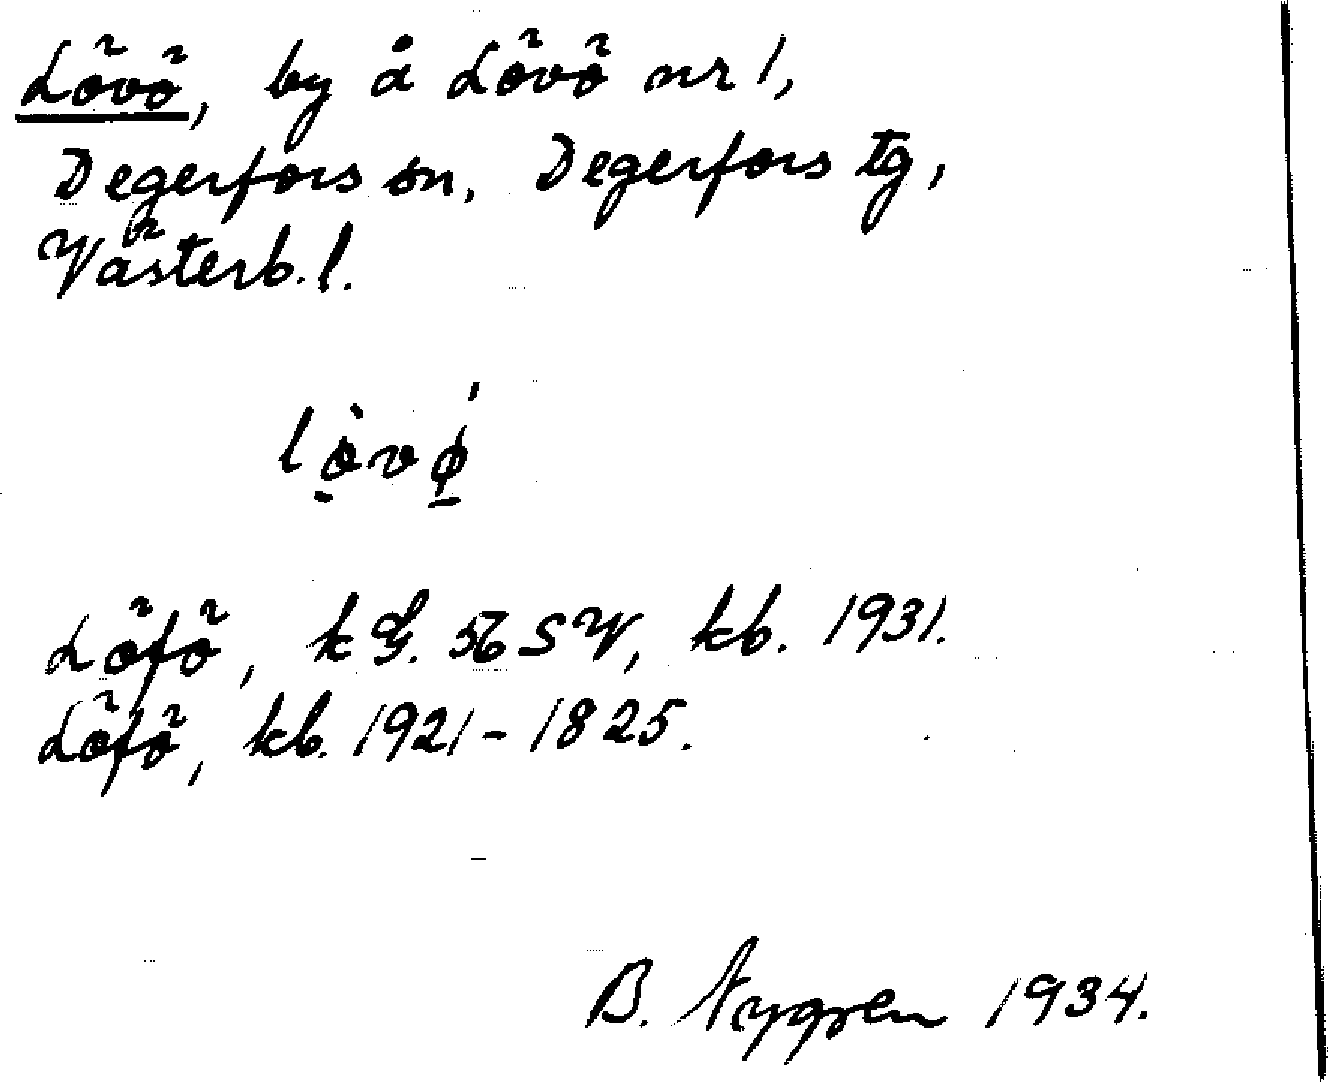 Lövö, by å Lövö nr 1,
Degerfors sn, Degerfors tg,
Västerb. l.
Löfö, k G. 56 SV, kb. 1931.
Löfö, kb. 1921-1825.
B. Nygren 1934.